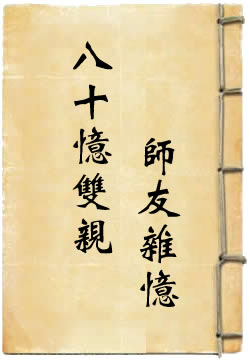 八十憶雙親
師友雜憶